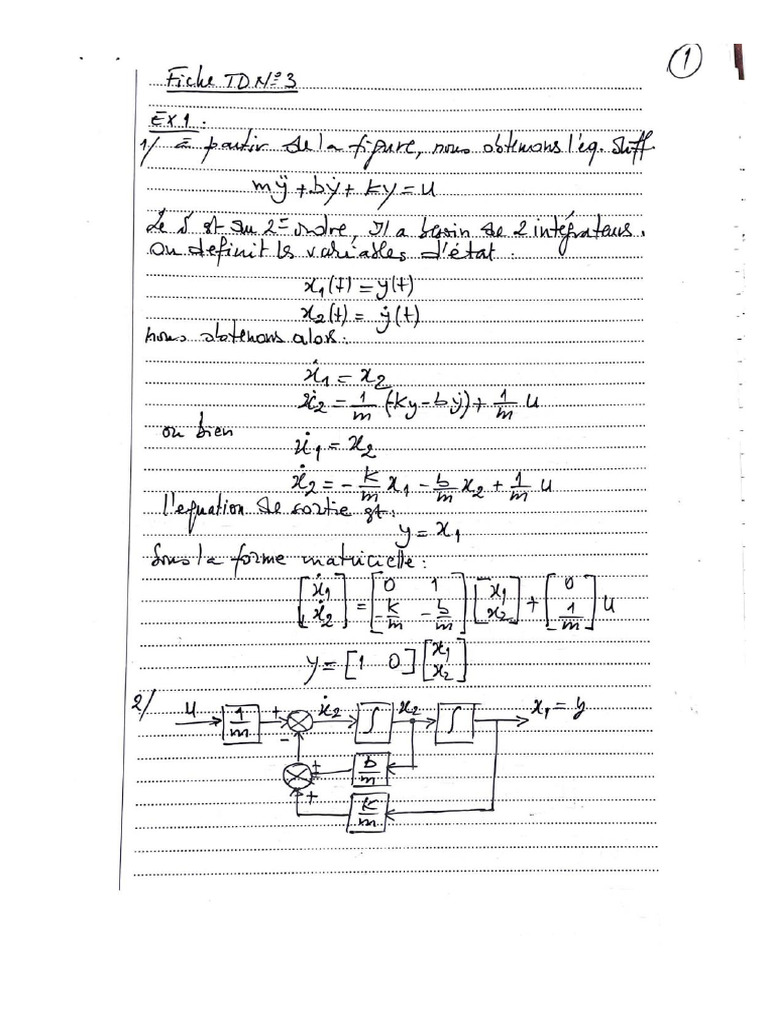 1
Fiche TD N°3
EX1:
1/ à partir de la figure, nous obtenons l'éq. diff.
mÿ + bẏ + ky = u
Le S est du 2= ordre, il a besoin de 2 intégrateurs.
On definit les variables d'état:
x₁(t) = y(t)
x₂(t) = ẏ(t)
nous obtenons alors:
ẋ₁ = x₂
ẋ₂ = 1/m (-ky - bẏ) + 1/m u
ou bien
ẋ₁ = x₂
ẋ₂ = - k/m x₁ - b/m x₂ + 1/m u
l'equation de sortie est:
y = x₁
Sous la forme matricielle:
[ẋ₁ ẋ₂] = [0 1 -k/m -b/m] [x₁ x₂] + [0 1/m] u
y = [1 0] [x₁ x₂]
2/ u 1/m + - ẋ₂ ∫ x₂ ∫ x₁ = y
+ b/m
+ k/m